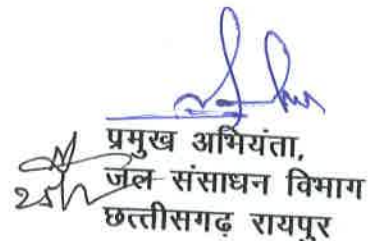 प्रमुख अभियंता,
जल संसाधन विभाग
छत्तीसगढ़ रायपुर